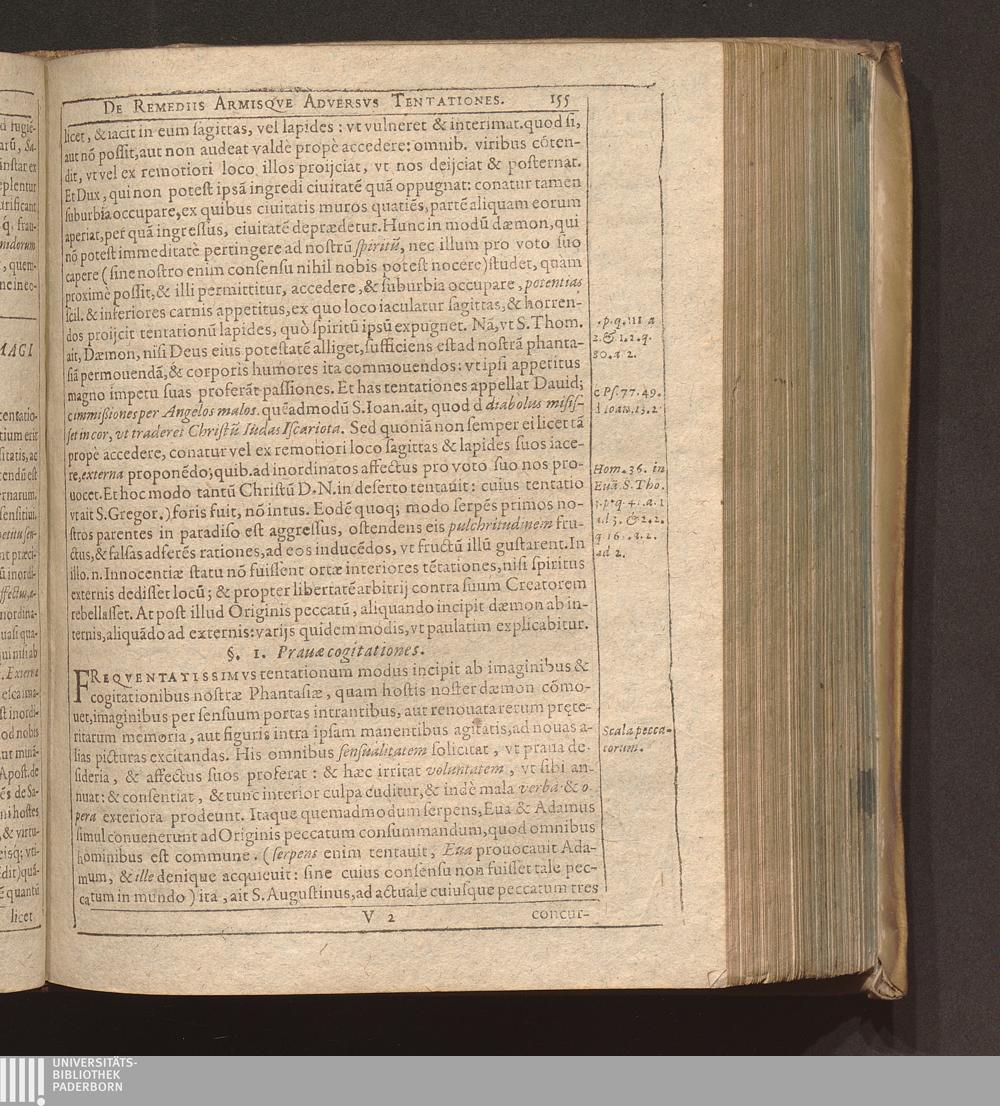 DE REMEDIIS ARMISQVE ADVERSVS TENTATIONES. 155
licet, & iacit in eum sagittas, vel lapides: vt vulneret & interimat. quod si,
aut nō possit, aut non audeat valdè propè accedere: omnib. viribus cōten-
dit, vt vel ex remotiori loco illos proijciat, vt nos deijciat & posternat.
Et Dux, qui non potest ipsā ingredi ciuitatē quā oppugnat: conatur tamen
suburbia occupare, ex quibus ciuitatis muros quatiēs, partē aliquam eorum
aperiat, per quā ingressus, ciuitatē deprædetur. Hunc in modū dæmon, qui
nō potest immeditatè pertingere ad nostrū spiritū, nec illum pro voto suo
capere (sine nostro enim consensu nihil nobis potest nocere) studet, quàm
proximè possit, & illi permittitur, accedere, & suburbia occupare, potentias
scil. & inferiores carnis appetitus, ex quo loco iaculatur sagittas, & horren-
dos proijcit tentationū lapides, quò spiritū ipsū expugnet. Nā, vt S. Thom.
ait, Dæmon, nisi Deus eius potestatē alliget, sufficiens est ad nostrā phanta-
siā permouendā, & corporis humores ita commouendos: vt ipsi appetitus
magno impetu suas proferāt passiones. Et has tentationes appellat Dauid;
c immissiones per Angelos malos. quēadmodū S. Ioan. ait, quod d diabolus misis-
set in cor, vt traderet Christū Iudas Iscariota. Sed quoniā non semper ei licet tā
propè accedere, conatur vel ex remotiori loco sagittas & lapides suos iace-
re, externa proponēdo; quib. ad inordinatos affectus pro voto suo nos pro-
uocet. Et hoc modo tantū Christū D. N. in deserto tentauit: cuius tentatio
vt ait S. Gregor.) foris fuit, nō intus. Eodē quoq; modo serpēs primos no-
stros parentes in paradiso est aggressus, ostendens eis pulchritudinem fru-
ctus, & falsas adferēs rationes, ad eos inducēdos, vt fructū illū gustarent. In
illo. n. Innocentiæ statu nō fuissent ortæ interiores tētationes, nisi spiritus
externis dedisset locū; & propter libertatē arbitrij contra suum Creatorem
rebellasset. At post illud Originis peccatū, aliquando incipit dæmon ab in-
ternis, aliquādo ad externis: varijs quidem modis, vt paulatim explicabitur.
§. 1. Prauæ cogitationes.
FREQVENTATISSIMVS tentationum modus incipit ab imaginibus &
cogitationibus nostræ Phantasiæ, quam hostis noster dæmon cōmo-
uet, imaginibus per sensuum portas intrantibus, aut renouata rerum pręte-
ritarum memoria, aut figuris intra ipsam manentibus agitatis, ad nouas a-
lias picturas excitandas. His omnibus sensualitatem solicitat, vt praua de-
sideria, & affectus suos proferat: & hæc irritat voluntatem, vt sibi an-
nuat: & consentiat, & tunc interior culpa cuditur, & indè mala verba & o-
pera exteriora prodeunt. Itaque quemadmodum serpens, Eua & Adamus
simul conuenerunt ad Originis peccatum consummandum, quod omnibus
hominibus est commune. (serpens enim tentauit, Eua prouocauit Ada-
mum, & ille denique acquieuit: sine cuius consensu non fuisset tale pec-
catum in mundo) ita, ait S. Augustinus, ad actuale cuiusque peccatum tres
V 2 concur-
.p. q. 111 a
2. & 1. 2. q.
80. a 2.
c Ps. 77. 49.
d Ioan. 13. 2
Hom. 36. in
Euā. S. Tho.
q 16. a. 2.
ad 2.
Scala pecca-
torum.
licet
UNIVERSITÄTS-
BIBLIOTHEK
PADERBORN